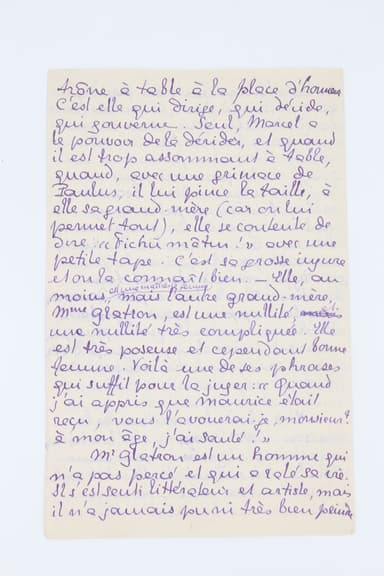 trône à table à la place d'honneur
C'est elle qui dirige, qui décide,
qui gouverne. Seul, Marcel a
le pouvoir de la dérider, et quand
il est trop assommant à table,
quand, avec une grimace de
Paulus, il lui pince la taille, à
elle sa grand-mère (car on lui
permet tout), elle se contente de
dire : « Fichu mâtin ! » avec une
petite tape. C'est sa grosse injure
et on la connaît bien. — Elle, au
est une maîtresse femme,
moins, mais l'autre grand-mère,
Mme Glatron, est une nullité,
une nullité très compliquée. Elle
est très poseuse et cependant bonne
femme. Voilà une de ses phrases
qui suffit pour la juger : « Quand
j'ai appris que Maurice était
reçu, vous l'avouerai-je, monsieur ?
à mon âge, j'ai sauté ! »
Mr Glatron est un homme qui
n'a pas percé et qui a raté sa vie.
Il s'est senti littérateur et artiste, mais
il n'a jamais pu ni très bien peindre